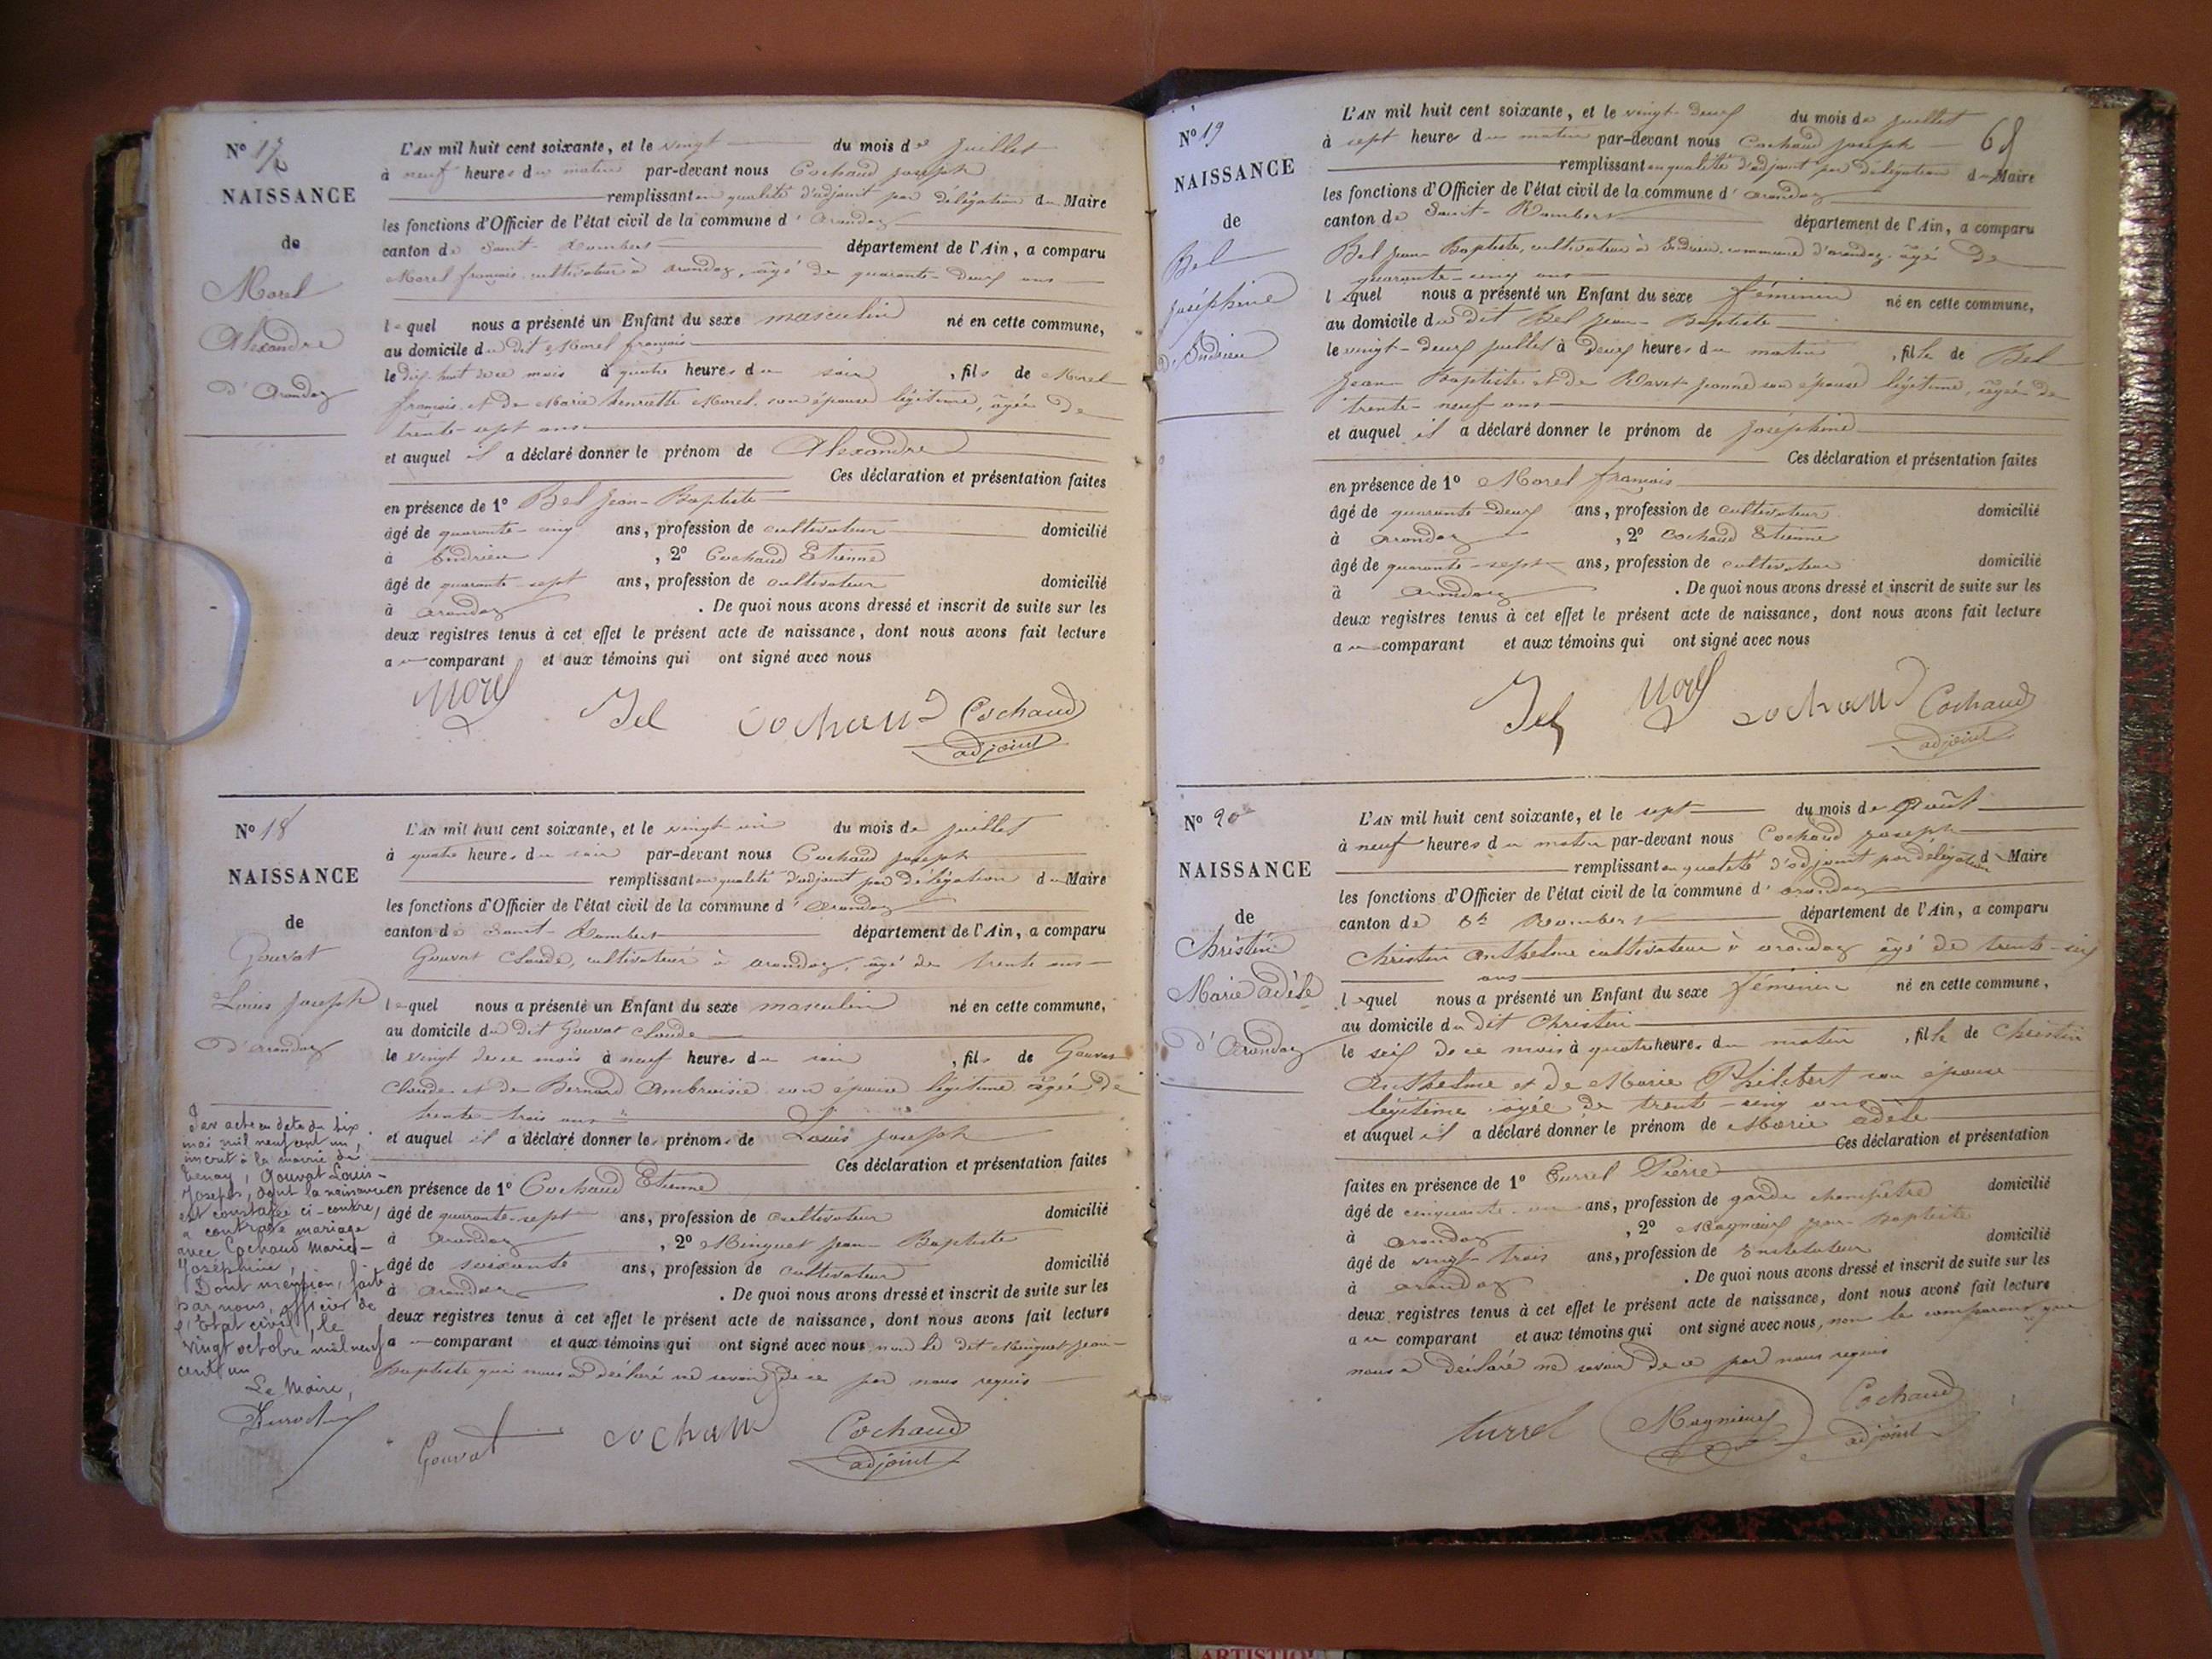 N° 17
NAISSANCE
de
Morel
Alexandre
d'Arandas
L'AN mil huit cent soixante, et le vingt du mois de juillet
à neuf heures du matin par-devant nous Cochaud joseph
remplissant en qualité d'adjoint par délégation du Maire
les fonctions d'Officier de l'état civil de la commune d'arandas
canton de Saint-Rambert département de l'Ain, a comparu
Morel françois cultivateur à arandas, âgé de quarante-deux ans
lequel nous a présenté un Enfant du sexe masculin né en cette commune,
au domicile du dit Morel françois
le dix-huit de ce mois à quatre heures du soir, fils de Morel
françois et de Marie henriette Morel son épouse légitime, âgée de
trente-sept ans
et auquel il a déclaré donner le prénom de Alexandre
Ces déclaration et présentation faites
en présence de 1° Bel jean-Baptiste
âgé de quarante-cinq ans, profession de cultivateur domicilié
à Indrieu, 2° Cochaud Etienne
âgé de quarante-sept ans, profession de cultivateur domicilié
à arandas. De quoi nous avons dressé et inscrit de suite sur les
deux registres tenus à cet effet le présent acte de naissance, dont nous avons fait lecture
au comparant et aux témoins qui ont signé avec nous
Morel Bel Cochaud Cochaud
adjoint
N° 18
NAISSANCE
de
Gouvat
Louis joseph
d'arandas
L'AN mil huit cent soixante, et le vingt un du mois de juillet
à quatre heures du soir par-devant nous Cochaud joseph
remplissant en qualité d'adjoint par délégation du Maire
les fonctions d'Officier de l'état civil de la commune d'arandas
canton de Saint-Rambert département de l'Ain, a comparu
Gouvat Claude, cultivateur à arandas, âgé de trente ans
lequel nous a présenté un Enfant du sexe masculin né en cette commune,
au domicile du dit Gouvat claude
le vingt de ce mois à neuf heures du soir, fils de Gouvat
Claude et de Bernard Ambroisie son épouse légitime âgée de
trente-trois ans
et auquel il a déclaré donner les prénoms de Louis joseph
Ces déclaration et présentation faites
en présence de 1° Cochaud Etienne
âgé de quarante-sept ans, profession de cultivateur domicilié
à arandas, 2° Minguet jean-Baptiste
âgé de soixante ans, profession de cultivateur domicilié
à arandas. De quoi nous avons dressé et inscrit de suite sur les
deux registres tenus à cet effet le présent acte de naissance, dont nous avons fait lecture
au comparant et aux témoins qui ont signé avec nous non le dit Minguet jean-
Baptiste qui nous a déclaré ne savoir de ce par nous requis
Gouvat Cochaud Cochaud
adjoint
Par acte en date du dix
mai mil neuf cent un,
inscrit à la mairie de
Tenay, Gouvat Louis-
Joseph, dont la naissance
est constatée ci-contre,
a contracté mariage
avec Cochaud Marie-
Joséphine,
Dont mention, faite
par nous, officier de
l'Etat civil, le
vingt octobre mil neuf
cent un
Le Maire,
N° 19
NAISSANCE
de
Bel
joséphine
d'Indrieu
68
L'AN mil huit cent soixante, et le vingt-deux du mois de juillet
à sept heures du matin par-devant nous Cochaud joseph
remplissant en qualité d'adjoint par délégation du Maire
les fonctions d'Officier de l'état civil de la commune d'arandas
canton de Saint-Rambert département de l'Ain, a comparu
Bel jean-Baptiste, cultivateur à Indrieu commune d'arandas âgé de
quarante-cinq ans
lequel nous a présenté un Enfant du sexe féminin né en cette commune,
au domicile du dit Bel jean-Baptiste
le vingt-deux juillet à deux heures du matin, fille de Bel
jean-Baptiste et de Ravet jeanne son épouse légitime, âgée de
trente-neuf ans
et auquel il a déclaré donner le prénom de joséphine
Ces déclaration et présentation faites
en présence de 1° Morel françois
âgé de quarante-deux ans, profession de cultivateur domicilié
à arandas, 2° Cochaud Etienne
âgé de quarante-sept ans, profession de cultivateur domicilié
à arandas. De quoi nous avons dressé et inscrit de suite sur les
deux registres tenus à cet effet le présent acte de naissance, dont nous avons fait lecture
au comparant et aux témoins qui ont signé avec nous
Bel Morel Cochaud Cochaud
adjoint
N° 20
NAISSANCE
de
Christin
Marie adèle
d'Arandas
L'AN mil huit cent soixante, et le sept du mois de Août
à neuf heures du matin par-devant nous Cochaud joseph
remplissant en qualité d'adjoint par délégation du Maire
les fonctions d'Officier de l'état civil de la commune d'arandas
canton de St Rambert département de l'Ain, a comparu
Christin Anthelme cultivateur à arandas âgé de trente-six
ans
lequel nous a présenté un Enfant du sexe féminin né en cette commune,
au domicile du dit Christin
le six de ce mois à quatre heures du matin, fille de Christin
Anthelme et de Marie Philibert son épouse
légitime âgée de trente-cinq ans
et auquel il a déclaré donner le prénom de Marie adèle
Ces déclaration et présentation
faites en présence de 1° Turrel Pierre
âgé de cinquante-un ans, profession de garde champêtre domicilié
à arandas, 2° Magnieux jean-Baptiste
âgé de vingt-trois ans, profession de Instituteur domicilié
à arandas. De quoi nous avons dressé et inscrit de suite sur les
deux registres tenus à cet effet le présent acte de naissance, dont nous avons fait lecture
au comparant et aux témoins qui ont signé avec nous, non le comparant qui
nous a déclaré ne savoir de ce par nous requis
turrel Magnieux Cochaud
adjoint